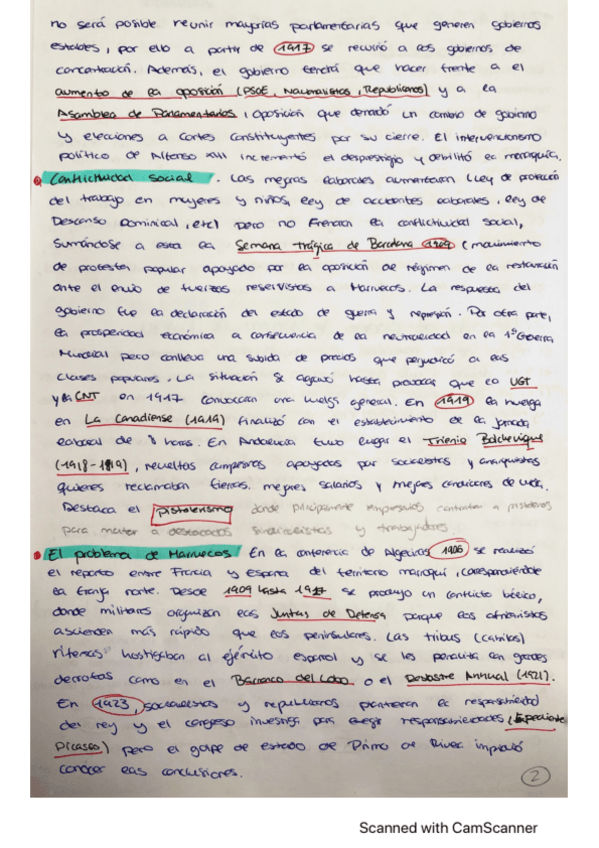 no será posible reunir mayorías parlamentarias que generen gobiernos
estables, por ello a partir de 1917 se recurrió a los gobiernos de
concentración. Además, el gobierno tendrá que hacer frente a el
aumento de la oposición (PSOE, Nacionalistas, Republicanos) y a la
Asamblea de Parlamentarios, oposición que demandó un cambio de gobierno
y elecciones a Cortes Constituyentes por su cierre. El intervencionismo
político de Alfonso XIII incrementó el desprestigio y debilitó la monarquía.
Conflictividad social. Las mejoras laborales aumentaron (Ley de protección
del trabajo en mujeres y niños, ley de accidentes laborales, ley de
Descanso Dominical, etc) pero no frenaron la conflictividad social,
sumándose a esta la Semana Trágica de Barcelona 1909 (movimiento
de protesta popular apoyado por la oposición al régimen de la restauración
ante el envío de fuerzas reservistas a Marruecos. La respuesta del
gobierno fue la declaración del estado de guerra y represión. Por otra parte,
la prosperidad económica a consecuencia de la neutralidad en la 1º Guerra
Mundial pero conlleva una subida de precios que perjudicó a las
clases populares. La situación se agravó hasta provocar que la UGT
y la CNT en 1917 convocaran una huelga general. En 1919 la huelga
en La Canadiense (1919) finalizó con el establecimiento de la jornada
laboral de 8 horas. En Andalucía tuvo lugar el Trienio Bolchevique
(1918-1919), revueltas campesinas apoyadas por socialistas y anarquistas
quienes reclamaban tierras, mejores salarios y mejores condiciones de vida.
Destaca el pistolerismo donde principalmente empresarios contratan a pistoleros
para matar a destacados sindicalistas y trabajadores.
El problema de Marruecos En la conferencia de Algeciras 1906 se realizó
el reparto entre Francia y España del territorio marroquí, correspondiéndole
la franja norte. Desde 1909 hasta 1917 se produjo un conflicto bélico,
donde militares organizan las Juntas de Defensa porque los africanistas
ascienden más rápido que los peninsulares. Las tribus (cabilas)
rifeñas hostigaban al ejército español y se les penaliza con grandes
derrotas como en el Barranco del Lobo o el Desastre Annual (1921).
En 1923, socialistas y republicanos plantearon la responsabilidad
del rey y el congreso investiga para exigir responsabilidades (Expediente
Picasso) pero el golpe de estado de Primo de Rivera impidió
conocer las conclusiones.
2
Scanned with CamScanner